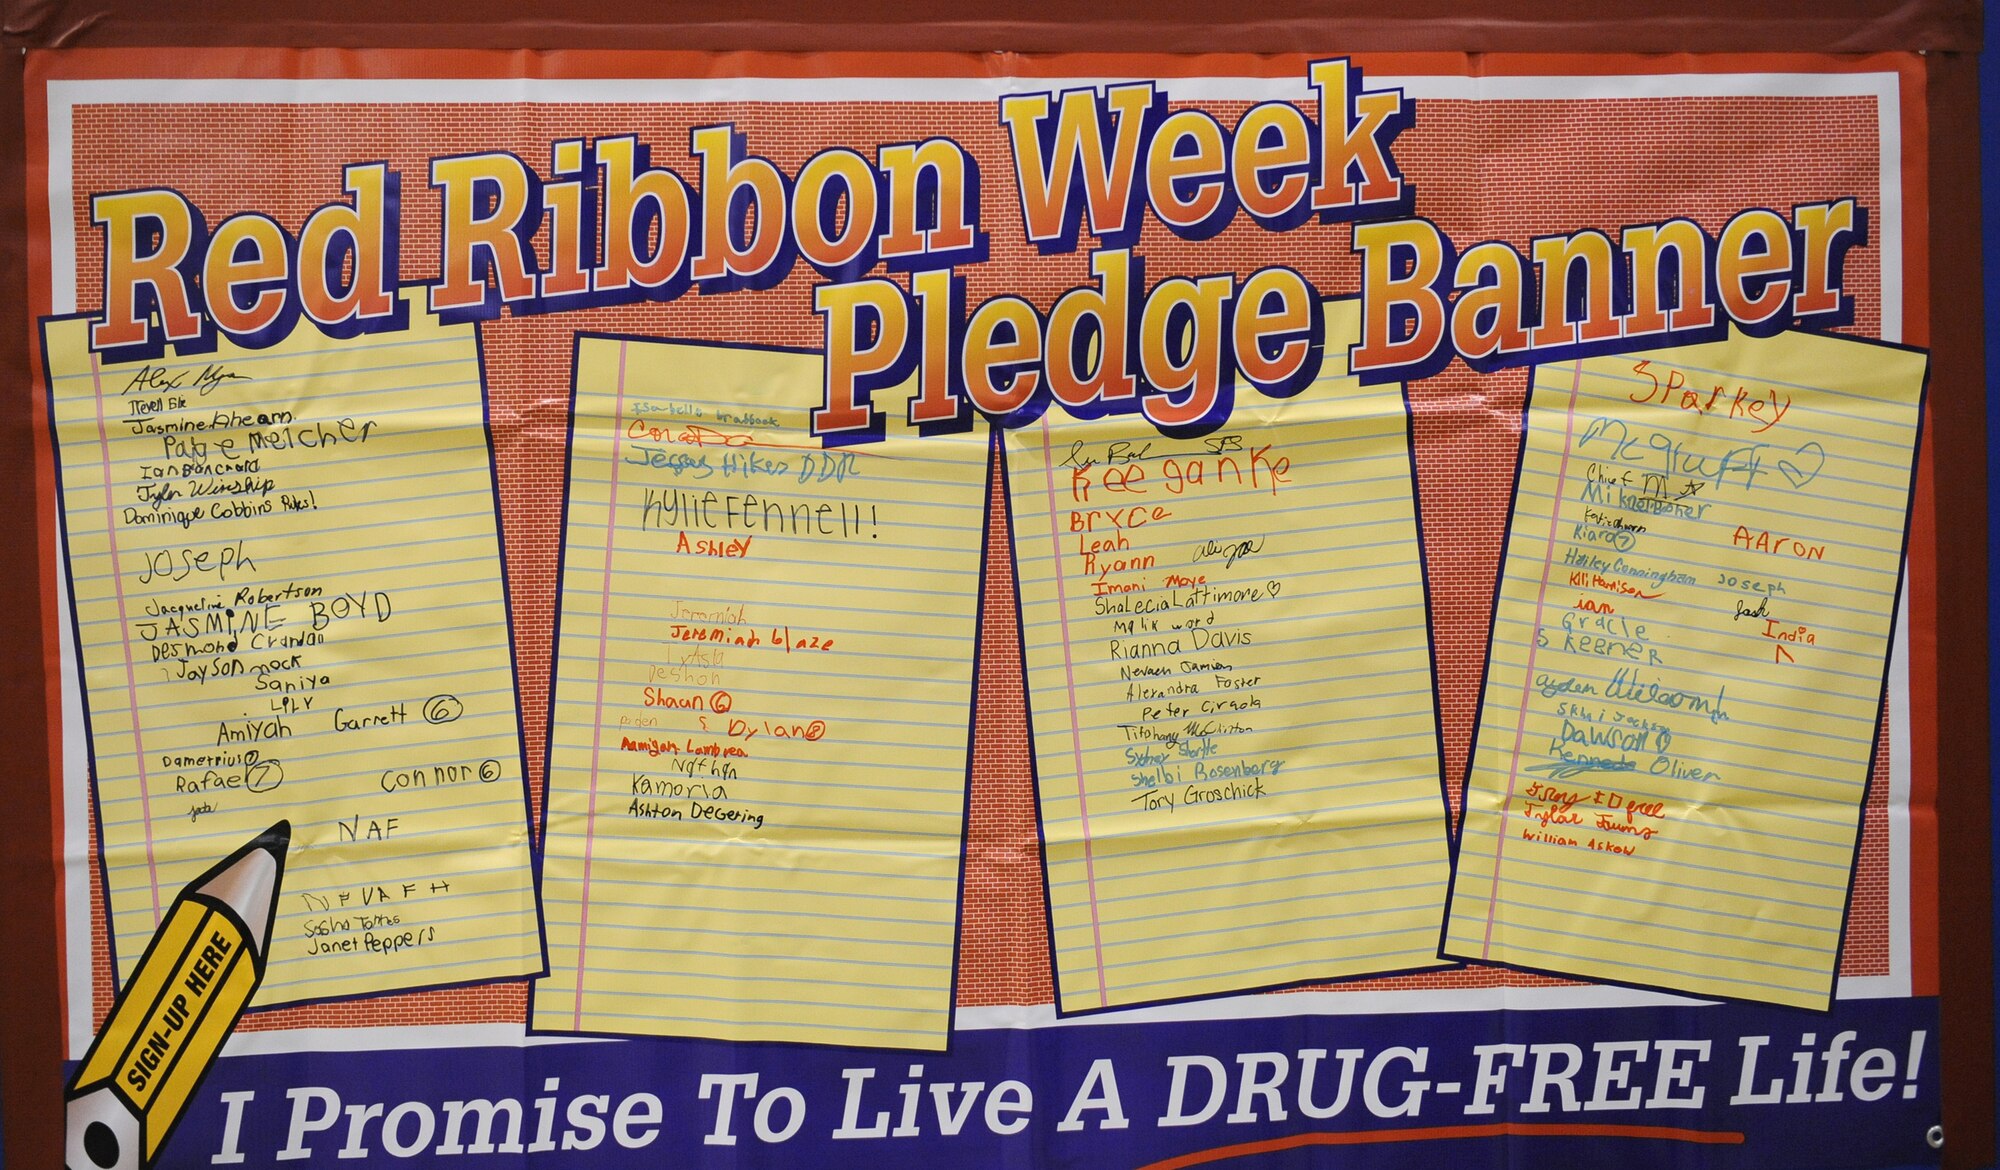 Red Ribbon Week
Pledge Banner
Alex
Jasmine Ahearn.
Paige Melcher
Ian Blanchard
Tyler Winship
Dominique Cobbins Rules!
Joseph
Jacqueline Robertson
JASMINE BOYD
Desmond Crandall
Jayson mock
Saniya
LILY
Amiyah Garrett 6
Dametrius 7
Rafael 7 Connor 6
jada
NAF
NEVAEH
Sasha Torres
Janet Peppers
SIGN-UP HERE
Isabella brabbock
Hikes DDR
Kylie Fennell!
Ashley
Jeremiah
Jeremiah blaze
Deshon
Shaun 6
Dylan 8
Nathan
Kamoria
Ashton DeGering
Keegan Ke
Bryce
Leah
Ryann
Imani Moye
ShaLecia Lattimore ♡
Malik word
Rianna Davis
Nevaeh Jamion
Alexandra Foster
Peter Ciraola
Tifahany McClinton
Sydney Shortle
Shelbi Rosenberg
Tory Groschick
Sparkey
McGruff ♡
Chief M ☆
Mikael Boner
Kiara 7 AAron
Hailey Cunningham Joseph
Kili Harrison Josh
ian India
Gracie
S Keener
ayden
Dawson
Kennedy Oliver
Tylar
William Askow
I Promise To Live A DRUG-FREE Life!